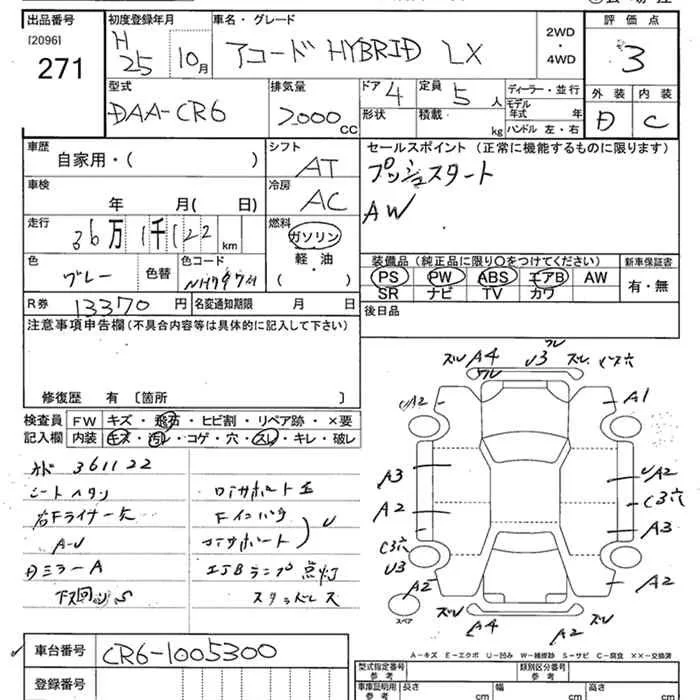 出品番号 初度登録年月 車名・グレード 評価点
[2096] H
271 25 10月 アコード HYBRID LX 2WD・4WD 3
型式 排気量 ドア 4 定員 5人 ディーラー・並行 外装 内装
DAA-CR6 2000cc 形状 積載 kg モデル年式 年 D C
ハンドル 左・右
車歴 シフト セールスポイント (正常に機能するものに限ります)
自家用・( ) AT プッシュスタート
車検 冷房 AW
年 月( 日) AC
走行 燃料
36万1千122km ガソリン
軽・油
( )
色 色替 色コード 装備品(純正品に限り○をつけてください) 新車保証書
グレー PS PW ABS エアB AW 有・無
SR ナビ TV カワ
R券 13370円 名変通知期限 月 日 後日品
注意事項申告欄(不具合内容等は具体的に記入して下さい)
修復歴 有 〔箇所 〕
検査員 FW キズ・飛石・ヒビ割・リペア跡・×要
記入欄 内装 キズ・汚レ・コゲ・穴・スレ・キレ・破レ
361122
シートヘタリ
右Fライナー欠
A-U
DミラーA
下回りS
Fインパク
コアサポート
ランプ点灯
スタッドレス
ズレ A4 U3 ズレ ビス穴
A2 A1
A3 UA2
A2 C3穴
C3穴 A3
U3 A2
A2
スペア
A4 A2
A-キズ E-エクボ U-凹み W-補修跡 S-サビ C-腐食 ××-交換済
車台番号 CR6-1005300
登録番号
型式指定番号 参考 類別区分番号 参考
車庫証明用 参考 長さ cm 幅 cm 高さ cm